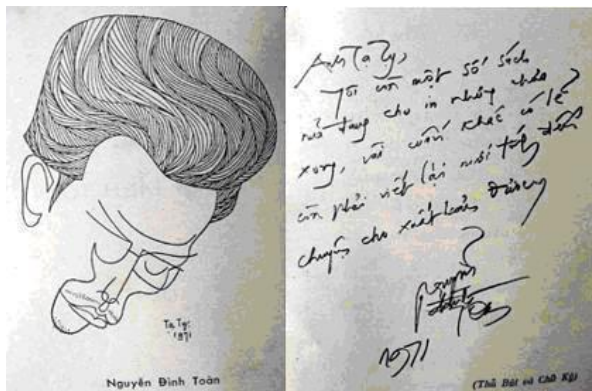 Tạ Tỵ
1971
Nguyễn Đình Toàn
Anh Tạ Tỵ,
Tôi còn một số sách
nữa đang cho in nhưng chưa
xong, vài cuốn khác có lẽ
còn phải viết lại mới
chuyện cho xuất bản được
Nguyễn
Đình Toàn
1971
(Thủ Bút và Chữ Ký)